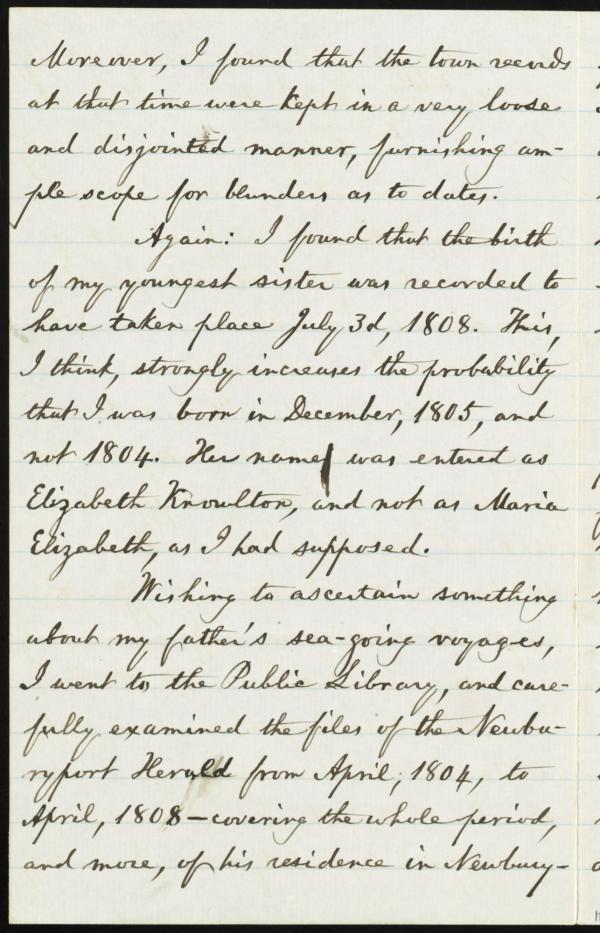 Moreover, I found that the town records
at that time were kept in a very loose
and disjointed manner, furnishing am-
ple scope for blunders as to dates.
Again: I found that the birth
of my youngest sister was recorded to
have taken place July 3d, 1808. This,
I think, strongly increases the probability
that I was born in December, 1805, and
not 1804. Her name was entered as
Elizabeth Knowlton, and not as Maria
Elizabeth, as I had supposed.
Wishing to ascertain something
about my father's sea-going voyages,
I went to the Public Library, and care-
fully examined the files of the Newbu-
ryport Herald from April, 1804, to
April, 1808—covering the whole period,
and more, of his residence in Newbury-